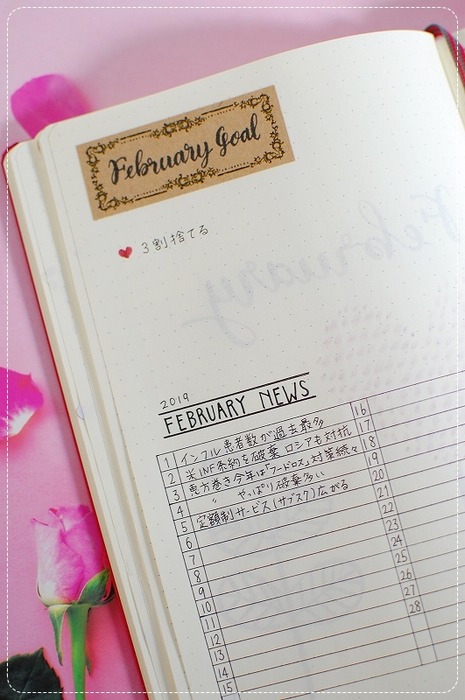 February Goal
3割捨てる
2019
FEBRUARY NEWS
1 インフル患者数が過去最多
2 米INF条約を破棄 ロシアも対抗
3 恵方巻き今年は「フードロス」対策続々
4 〃 やっぱり破棄多い
5 定額制サービス(サブスク)広がる
6
7
8
9
10
11
12
13
14
15
16
17
18
19
20
21
22
23
24
25
26
27
28
February